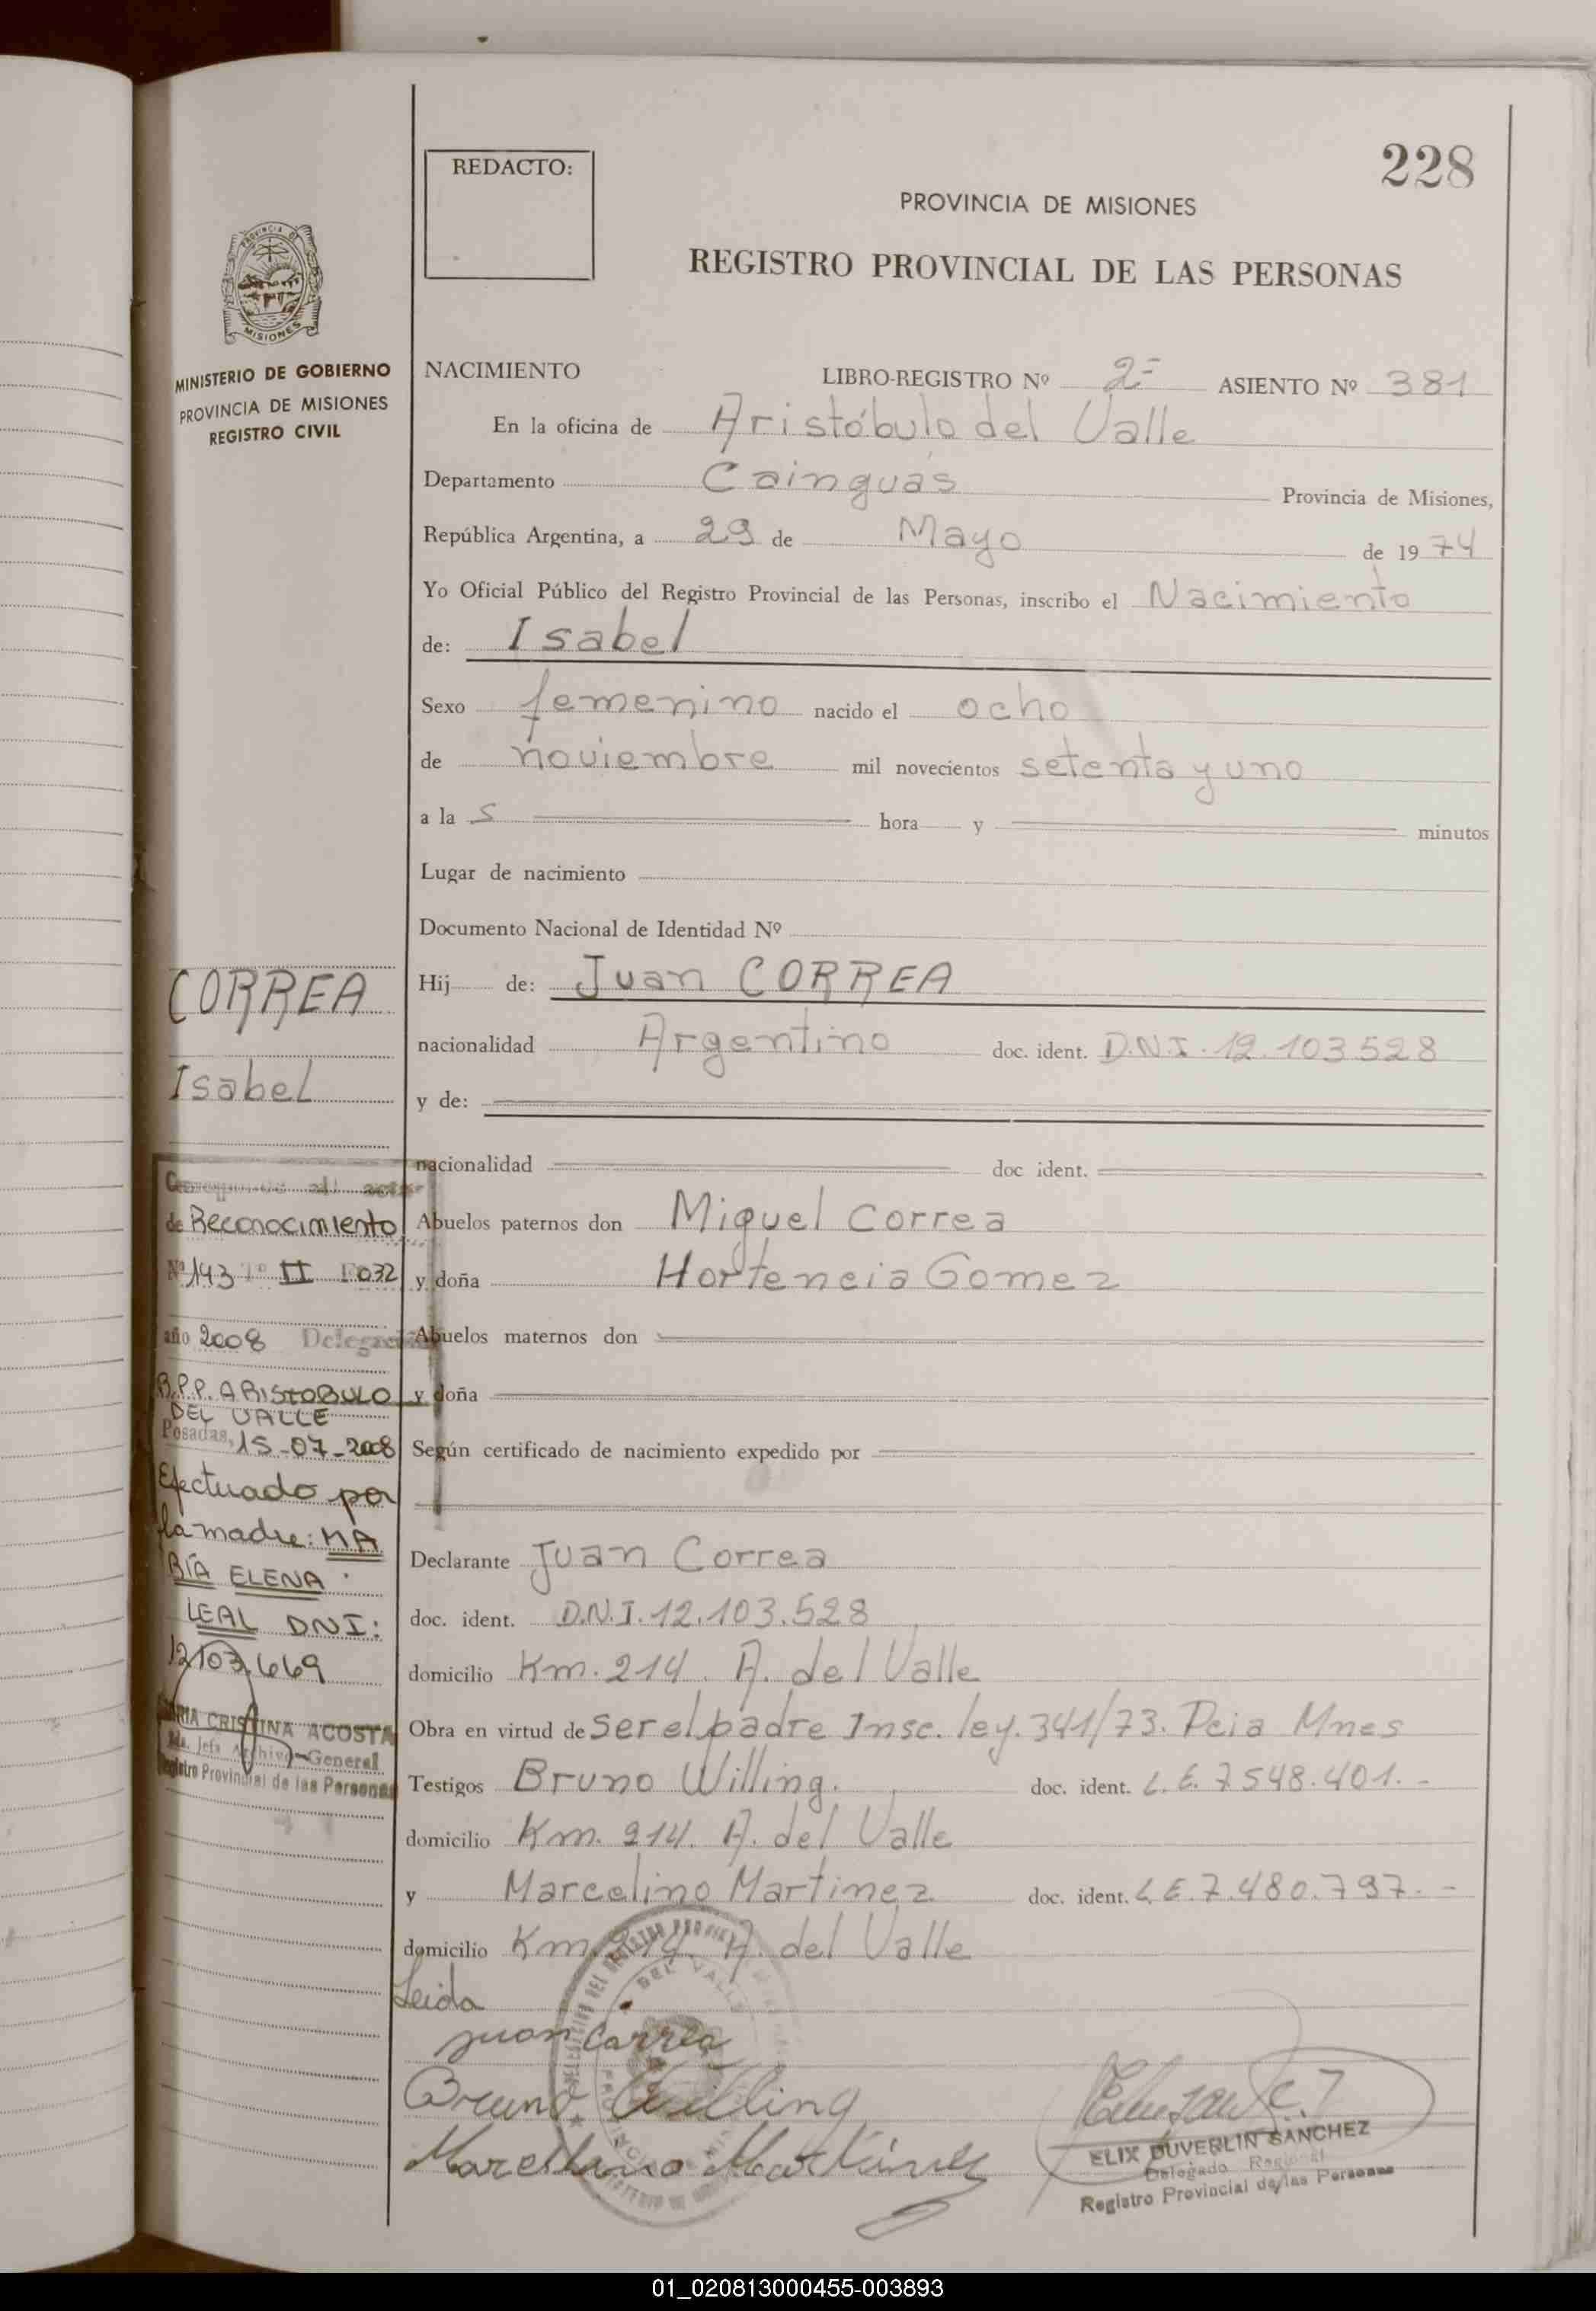 228
REDACTO:
PROVINCIA DE MISIONES
REGISTRO PROVINCIAL DE LAS PERSONAS
PROVINCIA DE
MISIONES
MINISTERIO DE GOBIERNO
PROVINCIA DE MISIONES
REGISTRO CIVIL
NACIMIENTO LIBRO-REGISTRO Nº 2- ASIENTO Nº 381
En la oficina de Aristóbulo del Valle
Departamento Cainguás Provincia de Misiones,
República Argentina, a 29 de Mayo de 1974
Yo Oficial Público del Registro Provincial de las Personas, inscribo el Nacimiento
de: Isabel
Sexo femenino nacido el ocho
de noviembre mil novecientos setenta y uno
a la s hora y minutos
Lugar de nacimiento
Documento Nacional de Identidad Nº
Hij de: Juan CORREA
nacionalidad Argentino doc. ident. D.N.I. 12.103528
y de:
nacionalidad doc ident.
Abuelos paternos don Miguel Correa
y doña Hortencia Gomez
Abuelos maternos don
y doña
Según certificado de nacimiento expedido por
Declarante Juan Correa
doc. ident. D.N.I. 12.103.528
domicilio Km. 214. A. del Valle
Obra en virtud de ser el padre Insc. ley. 341/73. Pcia Mnes
Testigos Bruno Willing. doc. ident. L.E. 7548.401.-
domicilio Km. 214. A. del Valle
y Marcelino Martinez doc. ident. L.E. 7.480.797.-
domicilio Km. 214. A. del Valle
Leida
Juan Correa
Bruno Willing
Marcelino Martínez
ELIX DUVERLIN SANCHEZ
Delegado Regional
Registro Provincial de las Personas
CORREA
Isabel
Corresponde al acta
de Reconocimiento
Nº 143 Tº II Fº 032
año 2008 Delegación
R.P.P. ARISTOBULO
DEL VALLE
Posadas, 15-07-2008
Efectuado por
la madre: MA
RÍA ELENA
LEAL DNI:
12103.669
MARIA CRISTINA ACOSTA
Jefa Archivo General
Registro Provincial de las Personas
01_020813000455-003893